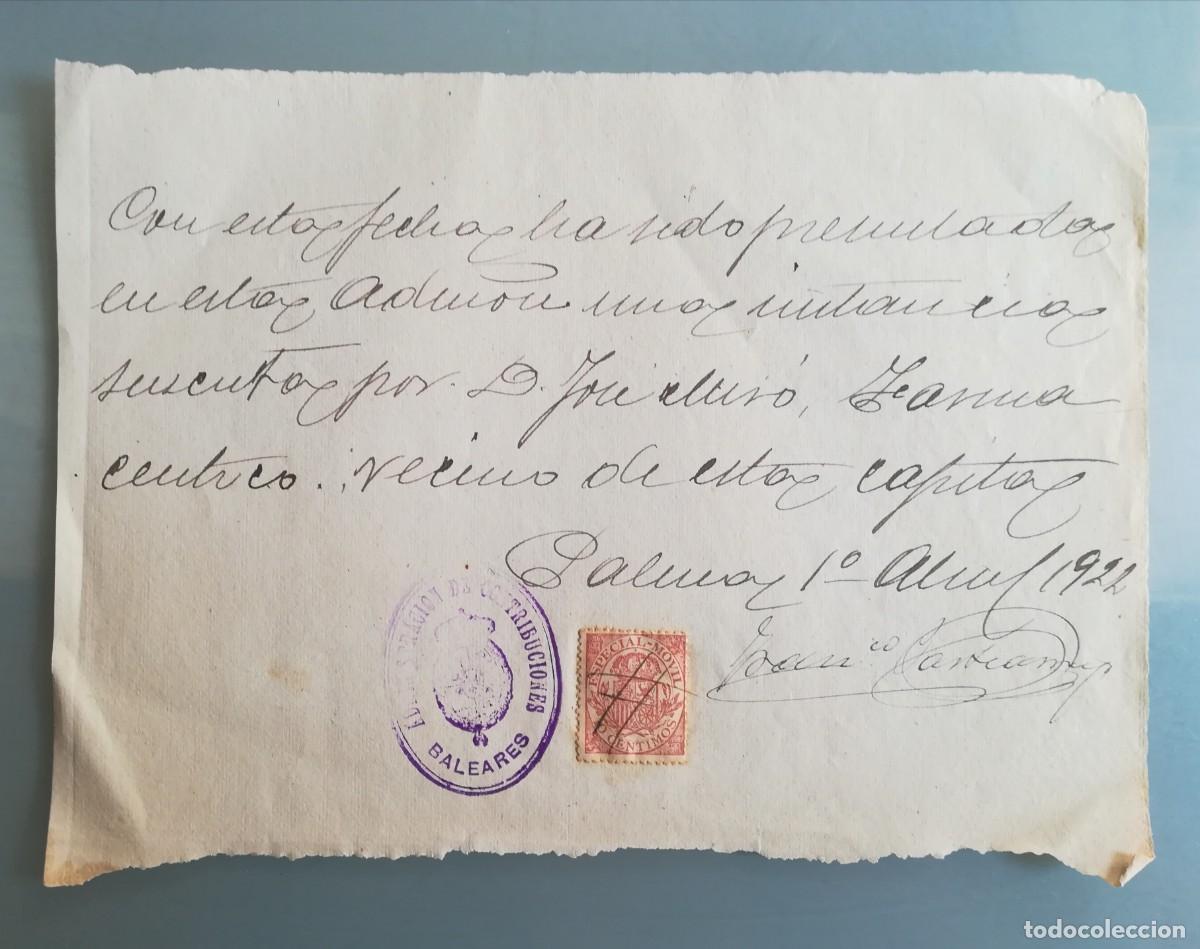 Con esta fecha ha sido presentada
en esta Admon una instancia
suscrita por D. José Miró, Farma
ceutico, vecino de esta capital
Palma 1º Abril 1922
Franco
ADMINISTRACION DE CONTRIBUCIONES
BALEARES
ESPECIAL-MOVIL
10 CENTIMOS
todocoleccion